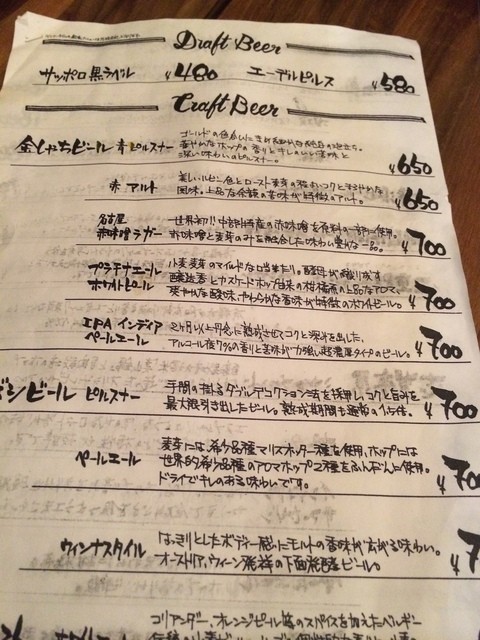 Draft Beer
サッポロ黒ラベル ¥480 エーデルピルス ¥580
Craft Beer
金しゃちビール 青 ピルスナー
ゴールドの色合いに
華やかなホップの香りとキレのいい苦味と
深い味わいのピルスナー。
¥650
赤 アルト
美しいルビー色とロースト麦芽の
風味。上品な余韻の苦味が特徴のアルト。
¥650
名古屋
赤味噌ラガー
世界初!!中部特産の赤味噌を原料の一部に使用。
赤味噌と麦芽のみを融合した味わい豊かな一品。
¥700
プラチナエール
ホワイトビール
小麦麦芽のマイルドな口当たり。酵母が織り成す
醸造香とカスケードホップ由来の柑橘系の上品なアロマ。
爽やかな酸味、やわらかな香味が特徴のホワイトビール。
¥700
IPA インディア
ペールエール
2ヶ月以上丹念に熟成させ、コクと深みを出した、
アルコール度7%の香りと苦味が力強い超濃厚タイプのビール。
¥700
ビール ピルスナー
手間の掛るダブルデコクション法を採用し、コクと旨みを
最大限引き出したビール。熟成期間も通常の1.5倍。
¥700
ペールエール
麦芽には、希少品種マリスオッター種を使用、ホップには
世界的希少品種のアロマホップ2種をふんだんに使用。
ドライでキレのある味わいです。
¥70
ウィンナスタイル
はっきりとしたボディー感にモルトの香味が広がる味わい。
オーストリア、ウィーン発祥の下面発酵ビール。
¥7
コリアンダー、オレンジピール等のスパイスを加えたベルギー